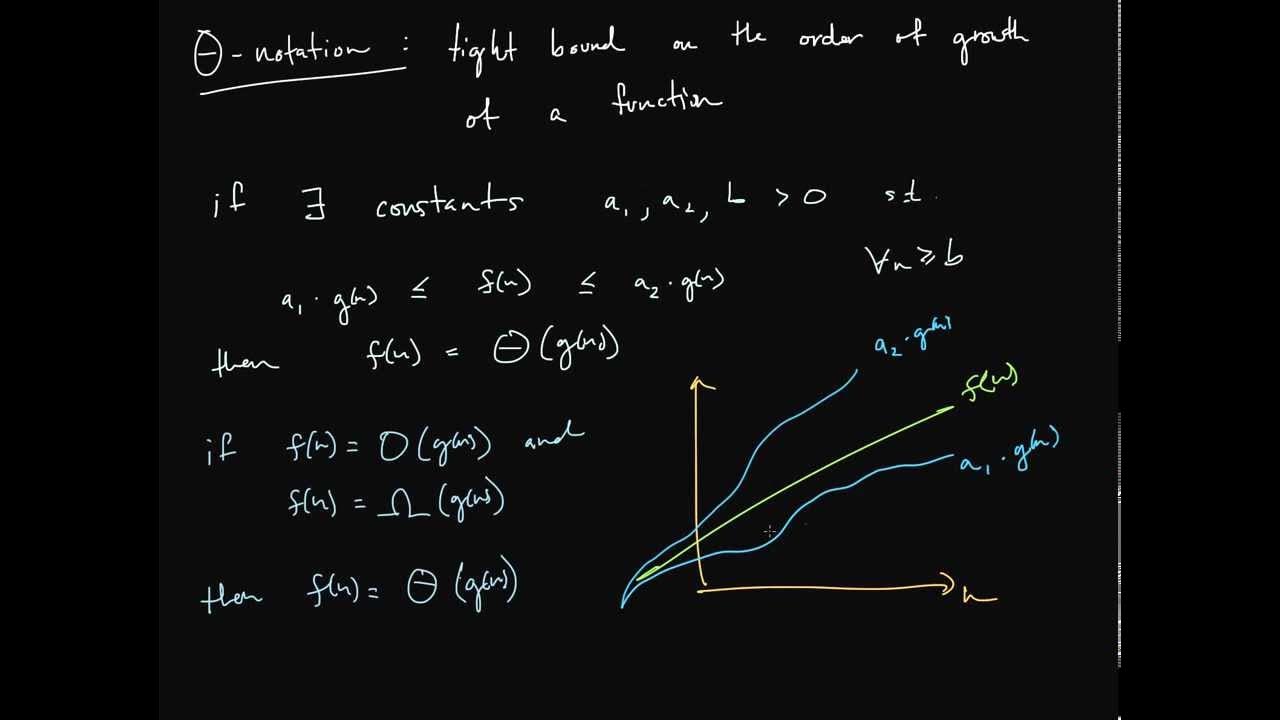 Θ-notation : tight bound on the order of growth
of a function
if ∃ constants a₁, a₂, b > 0 s.t.
∀n ≥ b
a₁ · g(n) ≤ f(n) ≤ a₂ · g(n)
then f(n) = Θ(g(n))
if f(n) = O(g(n)) and
f(n) = Ω(g(n))
then f(n) = Θ(g(n))
a₂ · g(n)
f(n)
a₁ · g(n)
n